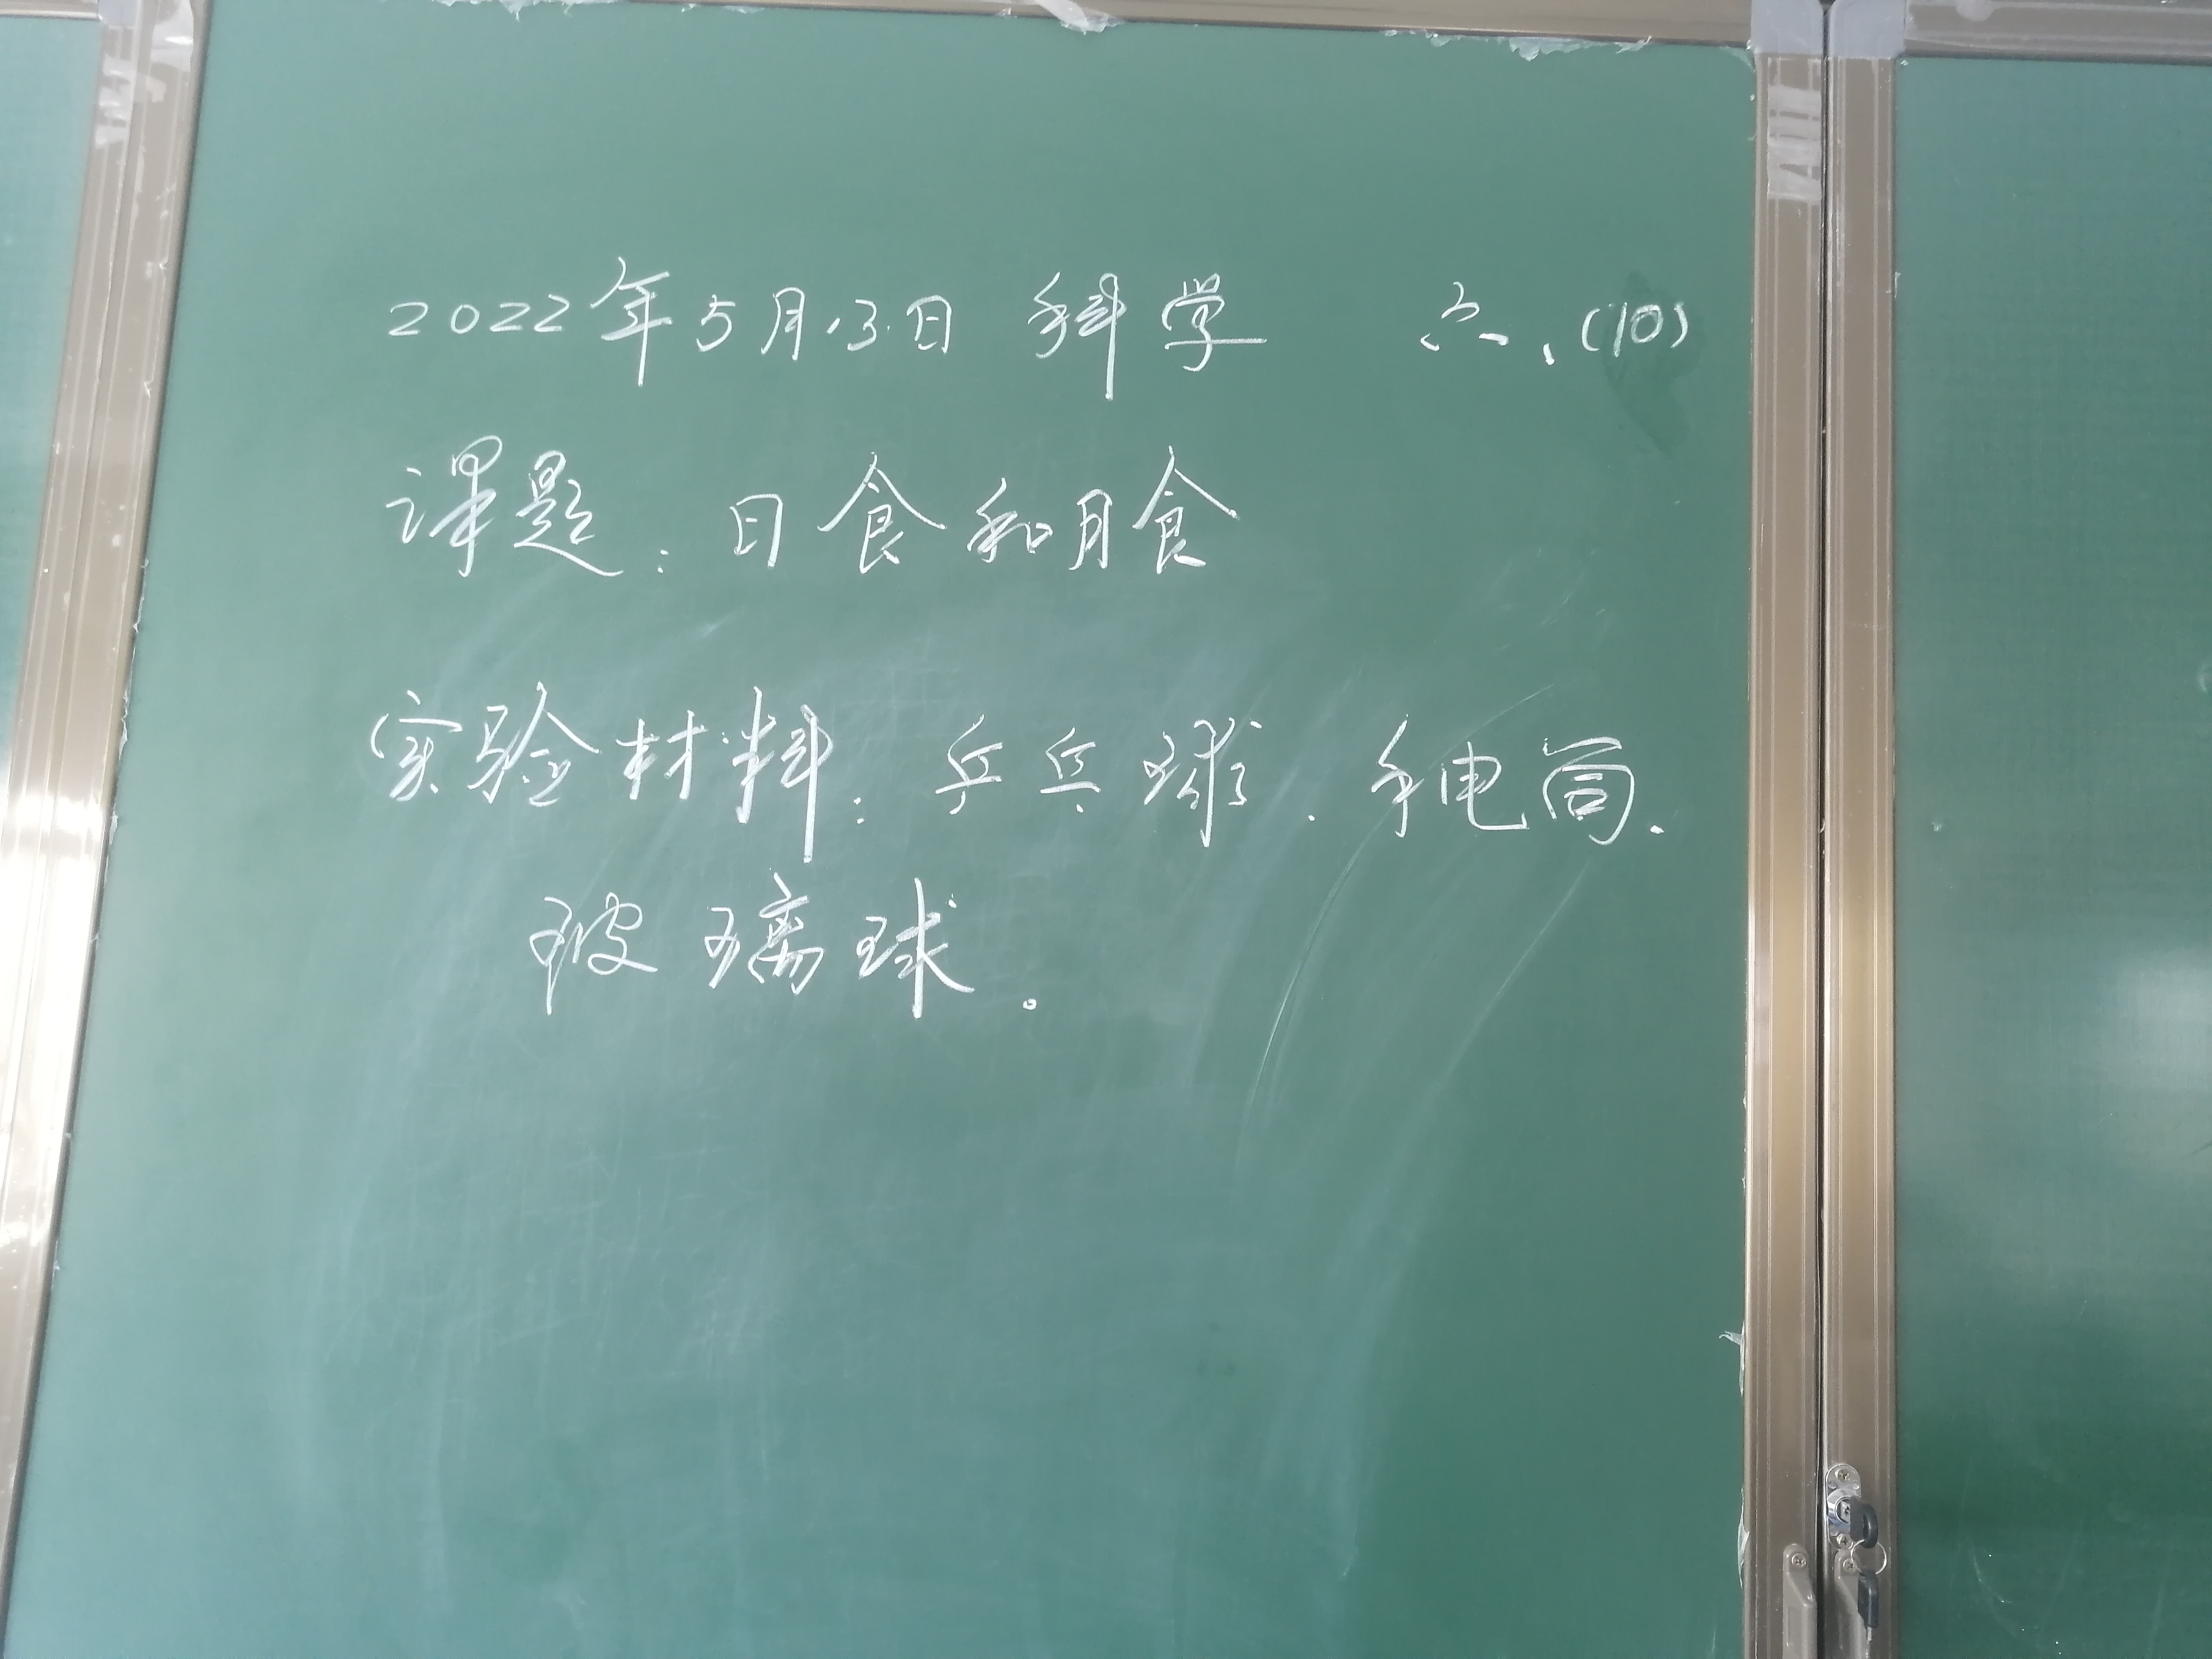 2022年5月13日 科学 六、(10)
课题：日食和月食
实验材料：乒乓球、手电筒、
玻璃球。